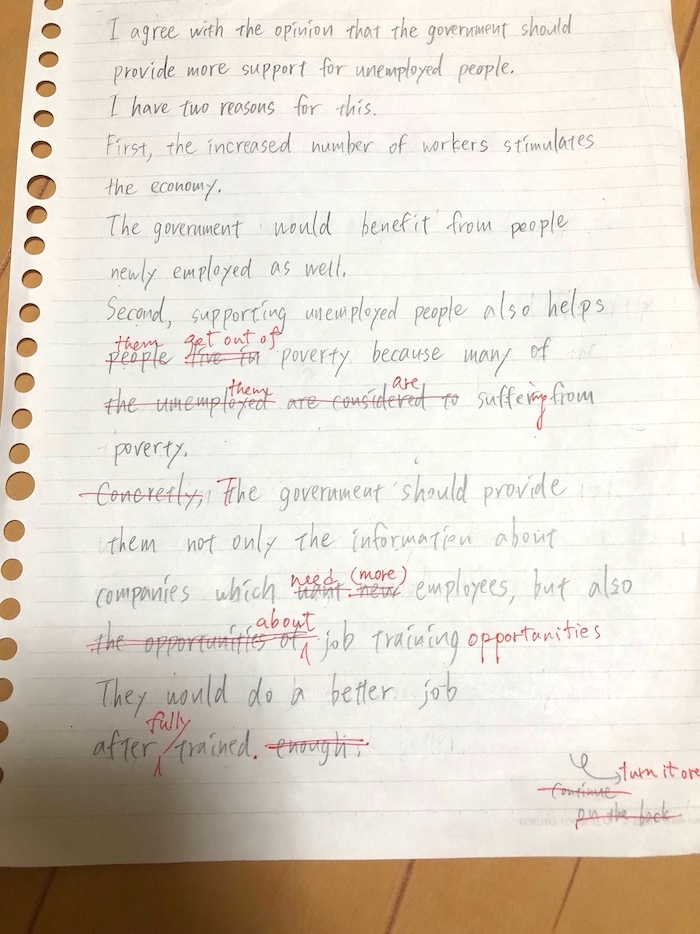 I agree with the opinion that the government should
provide more support for unemployed people.
I have two reasons for this.
First, the increased number of workers stimulates
the economy.
The government would benefit from people
newly employed as well.
Second, supporting unemployed people also helps
them get out of
people live in poverty because many of
them are
the unemployed are considered to suffering from
poverty.
Concretly, The government should provide
them not only the information about
need (more)
companies which want new employees, but also
about
the opportunities of job training opportunities
They would do a better job
fully
after trained. enough.
turn it ove
Continue
on the back